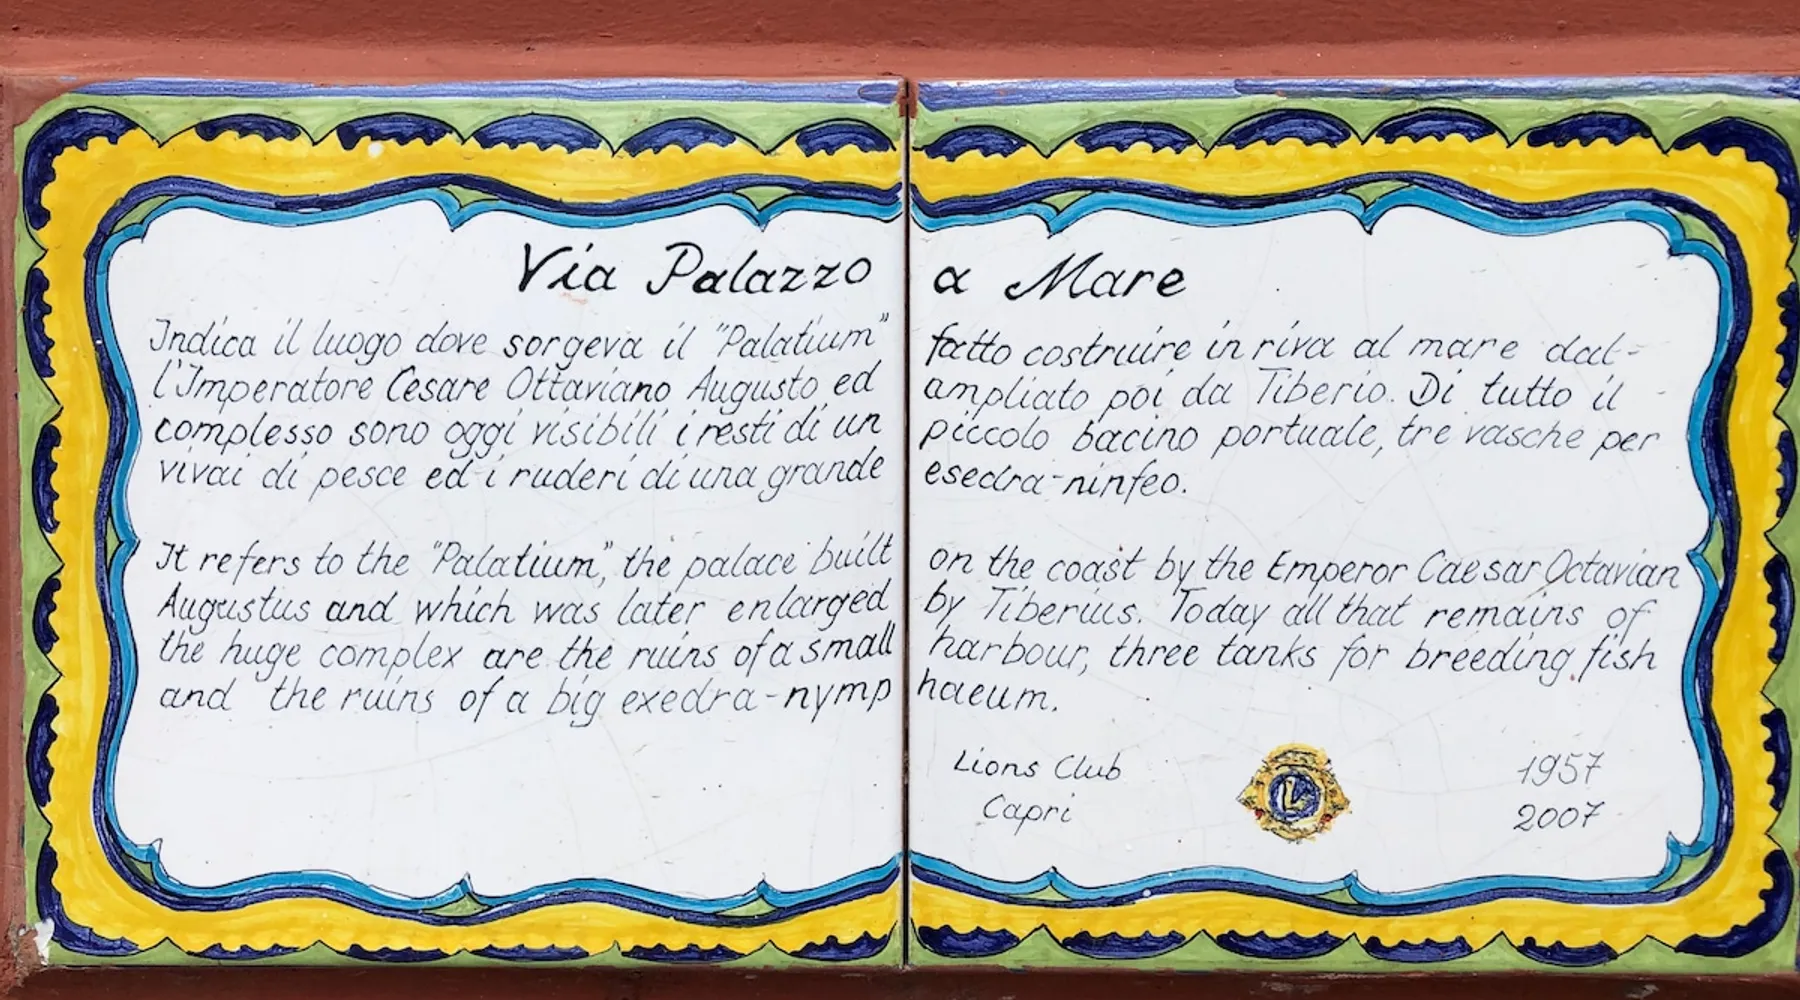 Via Palazzo a Mare
Indica il luogo dove sorgeva il "Palatium" fatto costruire in riva al mare dal-
l'Imperatore Cesare Ottaviano Augusto ed ampliato poi da Tiberio. Di tutto il
complesso sono oggi visibili i resti di un piccolo bacino portuale, tre vasche per
vivai di pesce ed i ruderi di una grande esedra-ninfeo.
It refers to the "Palatium", the palace built on the coast by the Emperor Caesar Octavian
Augustus and which was later enlarged by Tiberius. Today all that remains of
the huge complex are the ruins of a small harbour, three tanks for breeding fish
and the ruins of a big exedra-nymp haeum.
Lions Club L 1957
Capri 2007